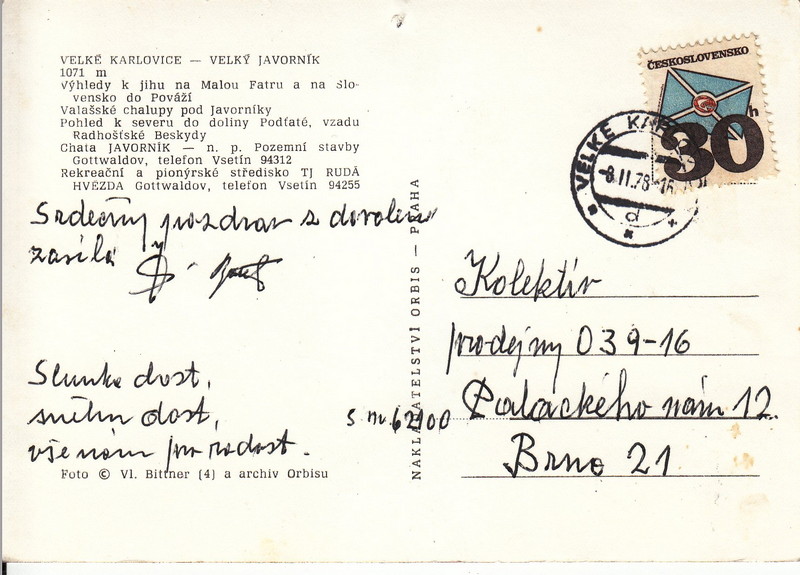 VELKÉ KARLOVICE — VELKÝ JAVORNÍK
1071 m
Výhledy k jihu na Malou Fatru a na Slo-
vensko do Pováží
Valašské chalupy pod Javorníky
Pohled k severu do doliny Podťaté, vzadu
Radhošťské Beskydy
Chata JAVORNÍK — n. p. Pozemní stavby
Gottwaldov, telefon Vsetín 94312
Rekreační a pionýrské středisko TJ RUDÁ
HVĚZDA Gottwaldov, telefon Vsetín 94255
Srdečný pozdrav z dovolené
zasílá
Slunka dost,
sněhu dost,
vše nám pro radost.
Foto © Vl. Bittner (4) a archiv Orbisu
NAKLADATELSTVÍ ORBIS — PRAHA
ČESKOSLOVENSKO
30h
VELKÉ KARLOVICE
-8.II.78-16
d
Kolektiv
prodejny 039-16
Palackého nám 12.
62100
Brno 21